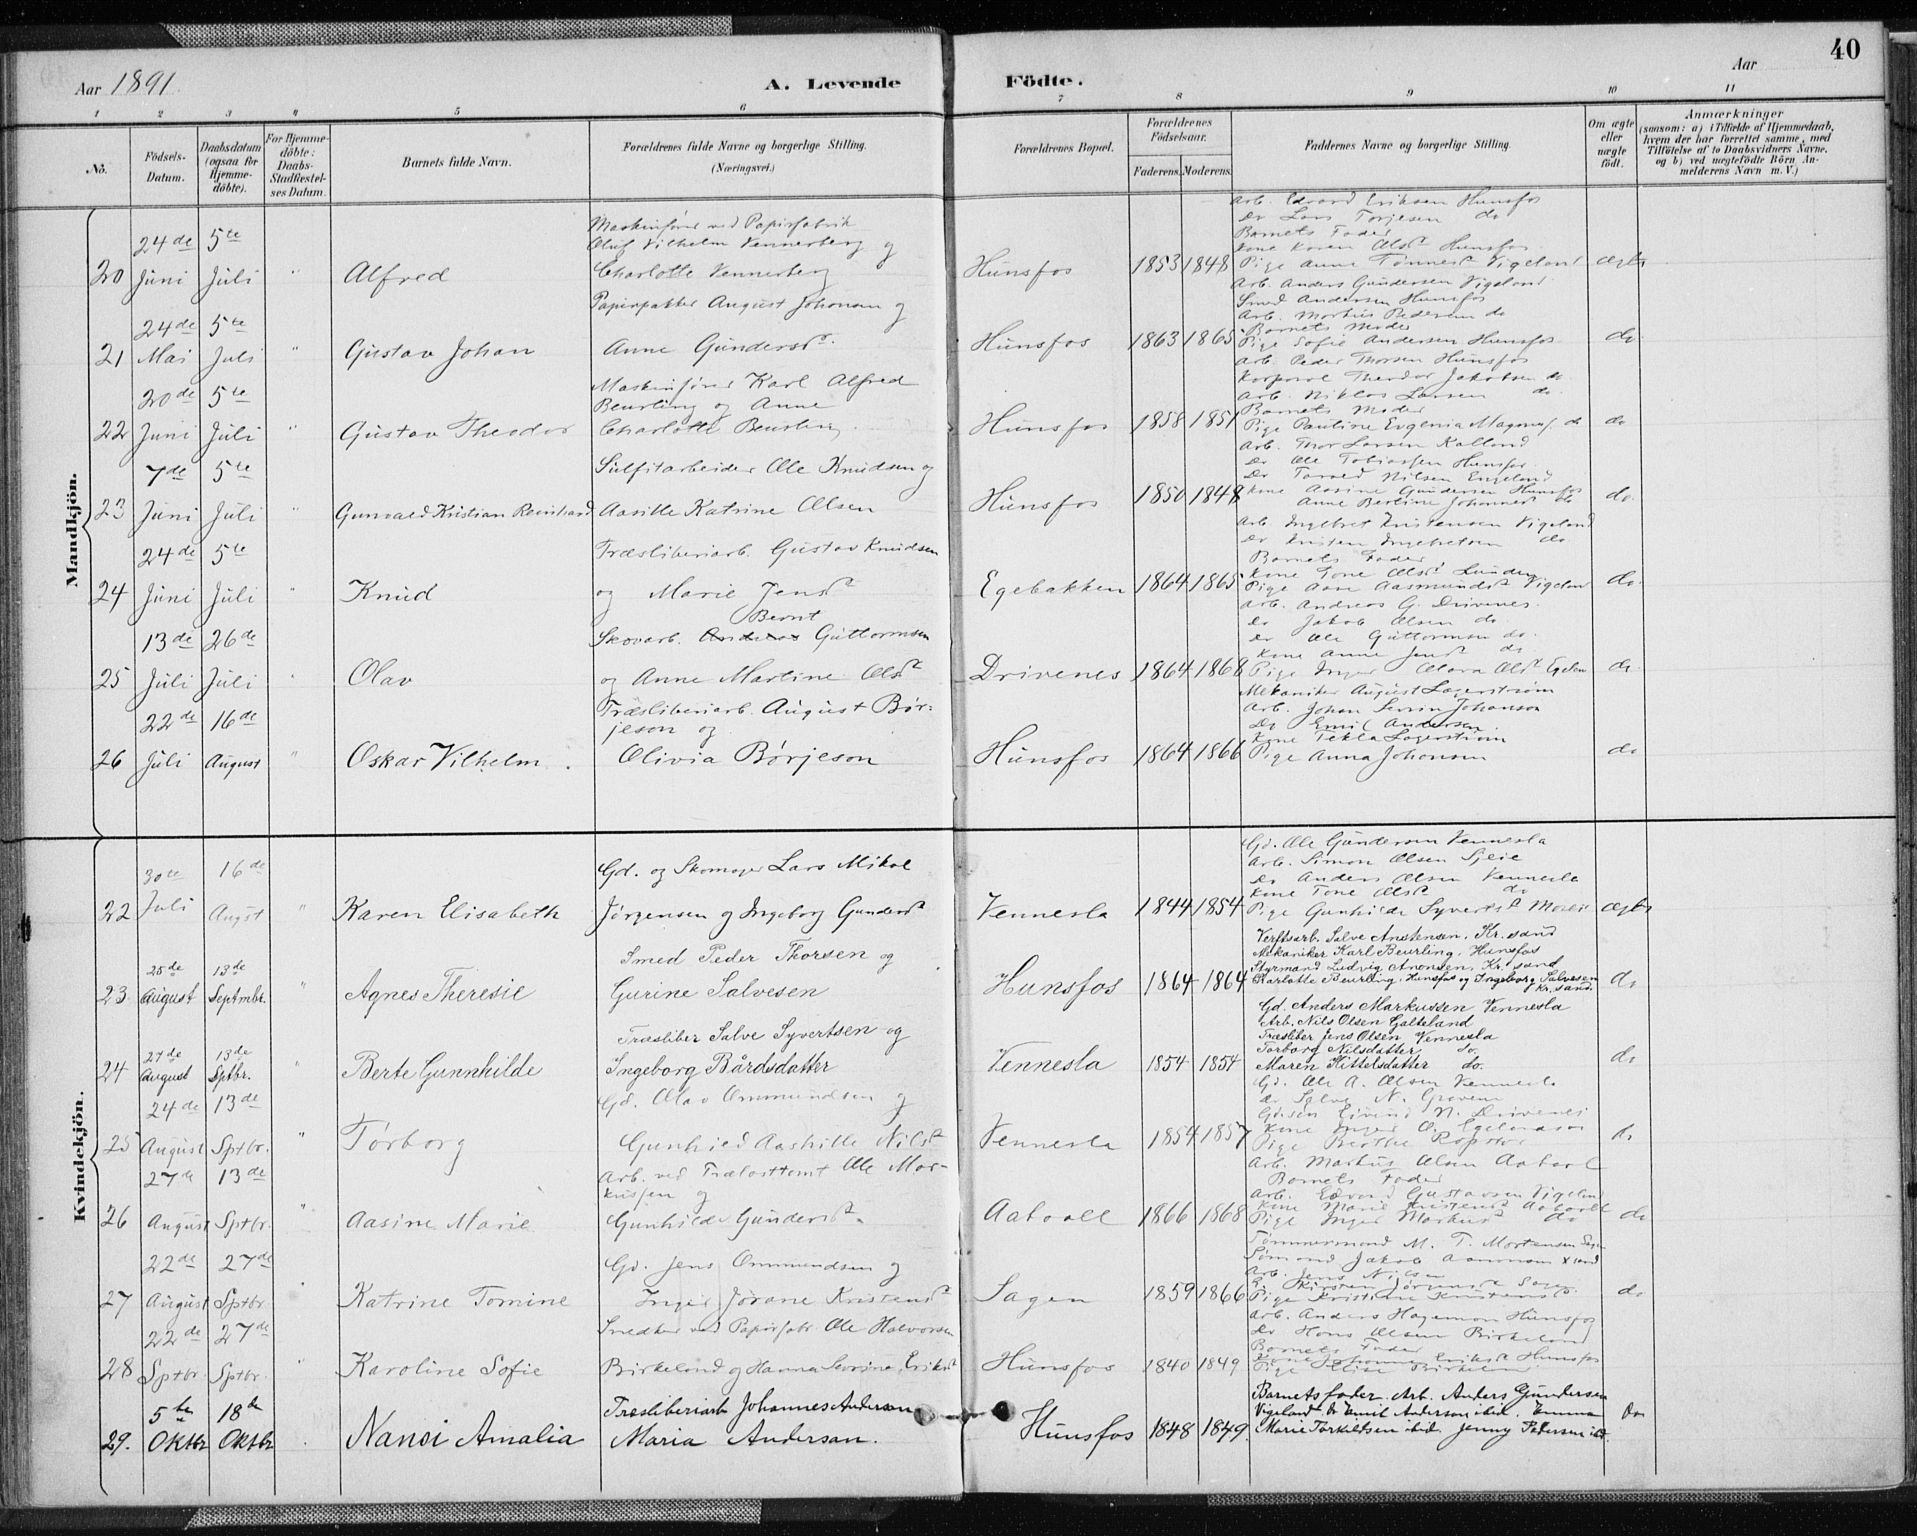 40
Aar 1891.
A. Levende Födte.
Aar
1 2 3 4 5 6 7 8 9 10 11
No.
Födsels-Datum.
Daabsdatum (ogsaa for Hjemme-döbte).
For Hjemme-döbte: Daabs-Stadfæstel-ses Datum.
Barnets fulde Navn.
Forældrenes fulde Navne og borgerlige Stilling. (Næringsvei.)
Forældrenes Bopæl.
Forældrenes Födselsaar.
Faderens. Moderens.
Faddernes Navne og borgerlige Stilling.
Om ægte eller uægte födt.
Anmærkninger
(saasom: a) i Tilfælde af Hjemmedaab, hvem der har forrettet samme, med Tilföielse af to Daabsvidners Navne, og b) ved uægtefödte Börn An-melderens Navn m. V.)
Mandkjön.
20 24de Juni 5te Juli " Alfred
Maskinfører ved Papirfabrik
Oluf Vilhelm Vennerberg og
Charlotte Vennerberg
Hunsfos 1853 1848
Arb. Edvard Eriksen Hunsfos
Do Lars Torjesen do
Barnets Fader
Kone Karen Olsd. Hunsfos
Pige Anne Tønnesd. Vigeland
ægte
21 24de Mai 5te Juli " Gustav Johan
Papirpakker August Johansen og
Anne Gundersd.
Hunsfos 1863 1865
Arb. Anders Gundersen Vigeland
Smed Andersen Hunsfos
Arb. Pedersen do
Barnets Moder
Pige Sofie Andersen Hunsfos
do
22 20de Juni 5te Juli " Gustav Theodor
Maskinfører Karl Alfred
Beurling og Anne
Charlotte Beurling.
Hunsfos 1858 1851
Arb. Peder Thorsen Hunsfos
Korporal Theodor Jakobsen do
Arb. Niklas Larsen do.
Barnets Moder
Pige Pauline Evgenia do
do
23 7de Juni 5te Juli " Gunvald Kristian Reinhard
Sulfitarbeider Ole Knudsen og
Aasille Katrine Olsen
Hunsfos 1850 1848
Arb. Thor Larsen Kalland
Do Ole Tobiassen Hunsfos
Do Nilsen Engeland
Kone Aasine Gundersen Hunsfos
Anne Bertine do
do
24 24de Juni 5te Juli Knud
Træsliberiarb. Gustav Knudsen
og Marie Jensd.
Egebakken 1864 1865
Arb. Ingebret Kristensen Vigeland
Do Kristen Ingebretsen do
Barnets Fader
Kone Tone Olsd. Lunden
Pige Aase Aasmundsd. Vigeland
do
25 13de Juli 26de Juli Olav
Bernt
Skovarb. Andreas Guttormsen
og Anne Martine Olsd.
Drivenes 1864 1868
Arb. Andreas G. Drivenes.
Do Jakob Olsen do.
Do Ole Guttormsen do.
Kone Anne Jensd. do
Pige Inger Olava Olsd.
do
26 22de Juli 16de August " Oskar Vilhelm.
Træsliberiarb. August Bør-
jeson og
Olivia Børjeson
Hunsfos 1864 1866
Mekaniker August Lagerstrøm
Arb. Johan Severin Johanson
Do Emil Andersen
Kone Tekla Lagerstrøm
Pige Anna Johansen
do
Kvindekjön.
22 30te Juli 16de Augst " Karen Elisabeth
Gd. og Skomager Lars Mikal
Jørgensen og Ingeborg Gundersd.
Vennesla 1844 1854
Gd. Ole Gundersen Vennesla
Arb. Simon Olsen
Do Anders Olsen Vennesla
Kone Tone Olsd. do
Pige Gunhilde Syversd.
ægte
23 25de August 13de Septmbr. " Agnes Theresie
Smed Peder Thorsen og
Gurine Salvesen
Hunsfos 1864 1864
Verftsarb. Salve Anstensen, Kr.sand
Mekaniker Karl Beurling, Hunsfos
Styrmand Ludvig Aronsen, Kr.sand
Karlotte Beurling, Hunsfos og Ingeborg Salvesen
Kr.sand.
do
24 27de August 13de Sptbr. " Berte Gunnhilde
Træsliber Salve Syvertsen og
Ingeborg Bårdsdatter
Vennesla 1854 1854
Gd. Anders Markussen Vennesla
Arb. Nils Olsen Galteland
Træsliber Jens Olsen Vennesla
Torborg Nilsdatter do.
Maren Kittelsdatter do.
do
25 24de August 13de Sptbr. " Tørborg
Gd. Olav Ommundsen og
Gunhild Aashille Nilsd.
Vennesla 1854 1857
Gd. Ole A. Olsen Vennesla
Do Salve N.
Gdsøn N. Drivenes
Kone Inger O.
Pige
do
26 27de August 13de Sptbr. " Aasine Marie
Arb. ved Ole Mar-
kussen og
Gunhilde Gundersd.
1866 1868
Arb. Markus Olsen
Barnets Fader
Arb. Edvard Gustavsen Vigeland
Kone Marie Kristensd.
Pige Inger Markusd. do
do
27 22de August 27de Sptbr. Katrine Tomine
Gd. Jens Ommundsen og
Inger Jørane Kristensd.
Sagen 1859 1866
Tømmermand M. T. Mortensen
Sømand Jakob
Arb. Jens Nilsen
Pige Kristiane
do
28 22de Sptbr. 27de Sptbr. " Karoline Sofie
Snedker ved Papirfabr. Ole Halvorsen
Birkeland og Hanna Severine Eriksd.
Hunsfos 1840 1849
Arb. Anders Hageman Hunsfos
Do Hans Olsen Birkeland
Barnets Fader
Kone Johanne Eriksd. Hunsfos
Pige Birkeland
do
29. 5te Oktbr 18de Oktbr Nansi Amalia
Træsliberiarb Johannes Anderson
Maria Anderson.
Hunsfos 1848 1849.
Barnets fader. Arb. Anders Gundersen
Vigeland. Do Emil Anderson ibid. Emma
Marie Torkildsen ibid. Jenny Pedersen ibd.
Do